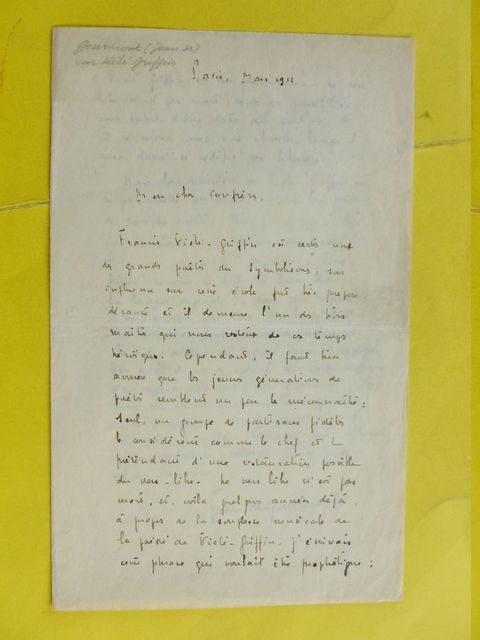 Gourmont (Jean de)
sur Vielé Griffin
Paris, Mars 1911
Mon cher confrère,
Francis Vielé-Griffin est certes un
des grands poètes du Symbolisme, son
influence sur cette école fut très prépon-
dérante et il demeure l'un des très
maîtres qui nous restent de ces temps
héroïques. Cependant, il faut bien
avouer que les jeunes générations de
poètes semblent un peu le méconnaître :
Seul, un groupe de partisans fidèles
le considèrent comme le chef et le
prétendant d'une restauration possible
du vers-libre. Le vers libre n'est pas
mort, et, voilà quelques années déjà,
à propos de la souplesse musicale de
la poésie de Vielé-Griffin, j'écrivais
cette phrase qui voulait être prophétique :